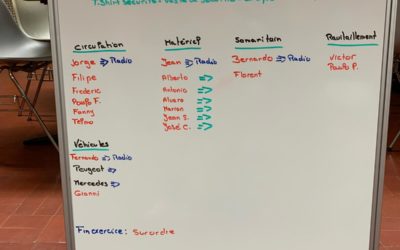 T.Shirt Sécurité
Circulation
Jorge => Radio
Filipe
Frederic
Paulo F.
Fanny
Telmo
Véhicules
Fernando => Radio
Peugeot =>
Mercedes =>
Gianni
Matériel
Jean => Radio
Alberto =>
Antonio =>
Alvaro =>
Marion =>
Jean S. =>
José C. =>
Samaritain
Bernardo => Radio
Florent
Ravitaillement
Victor
Paulo P.
Fin exercice : Surordre